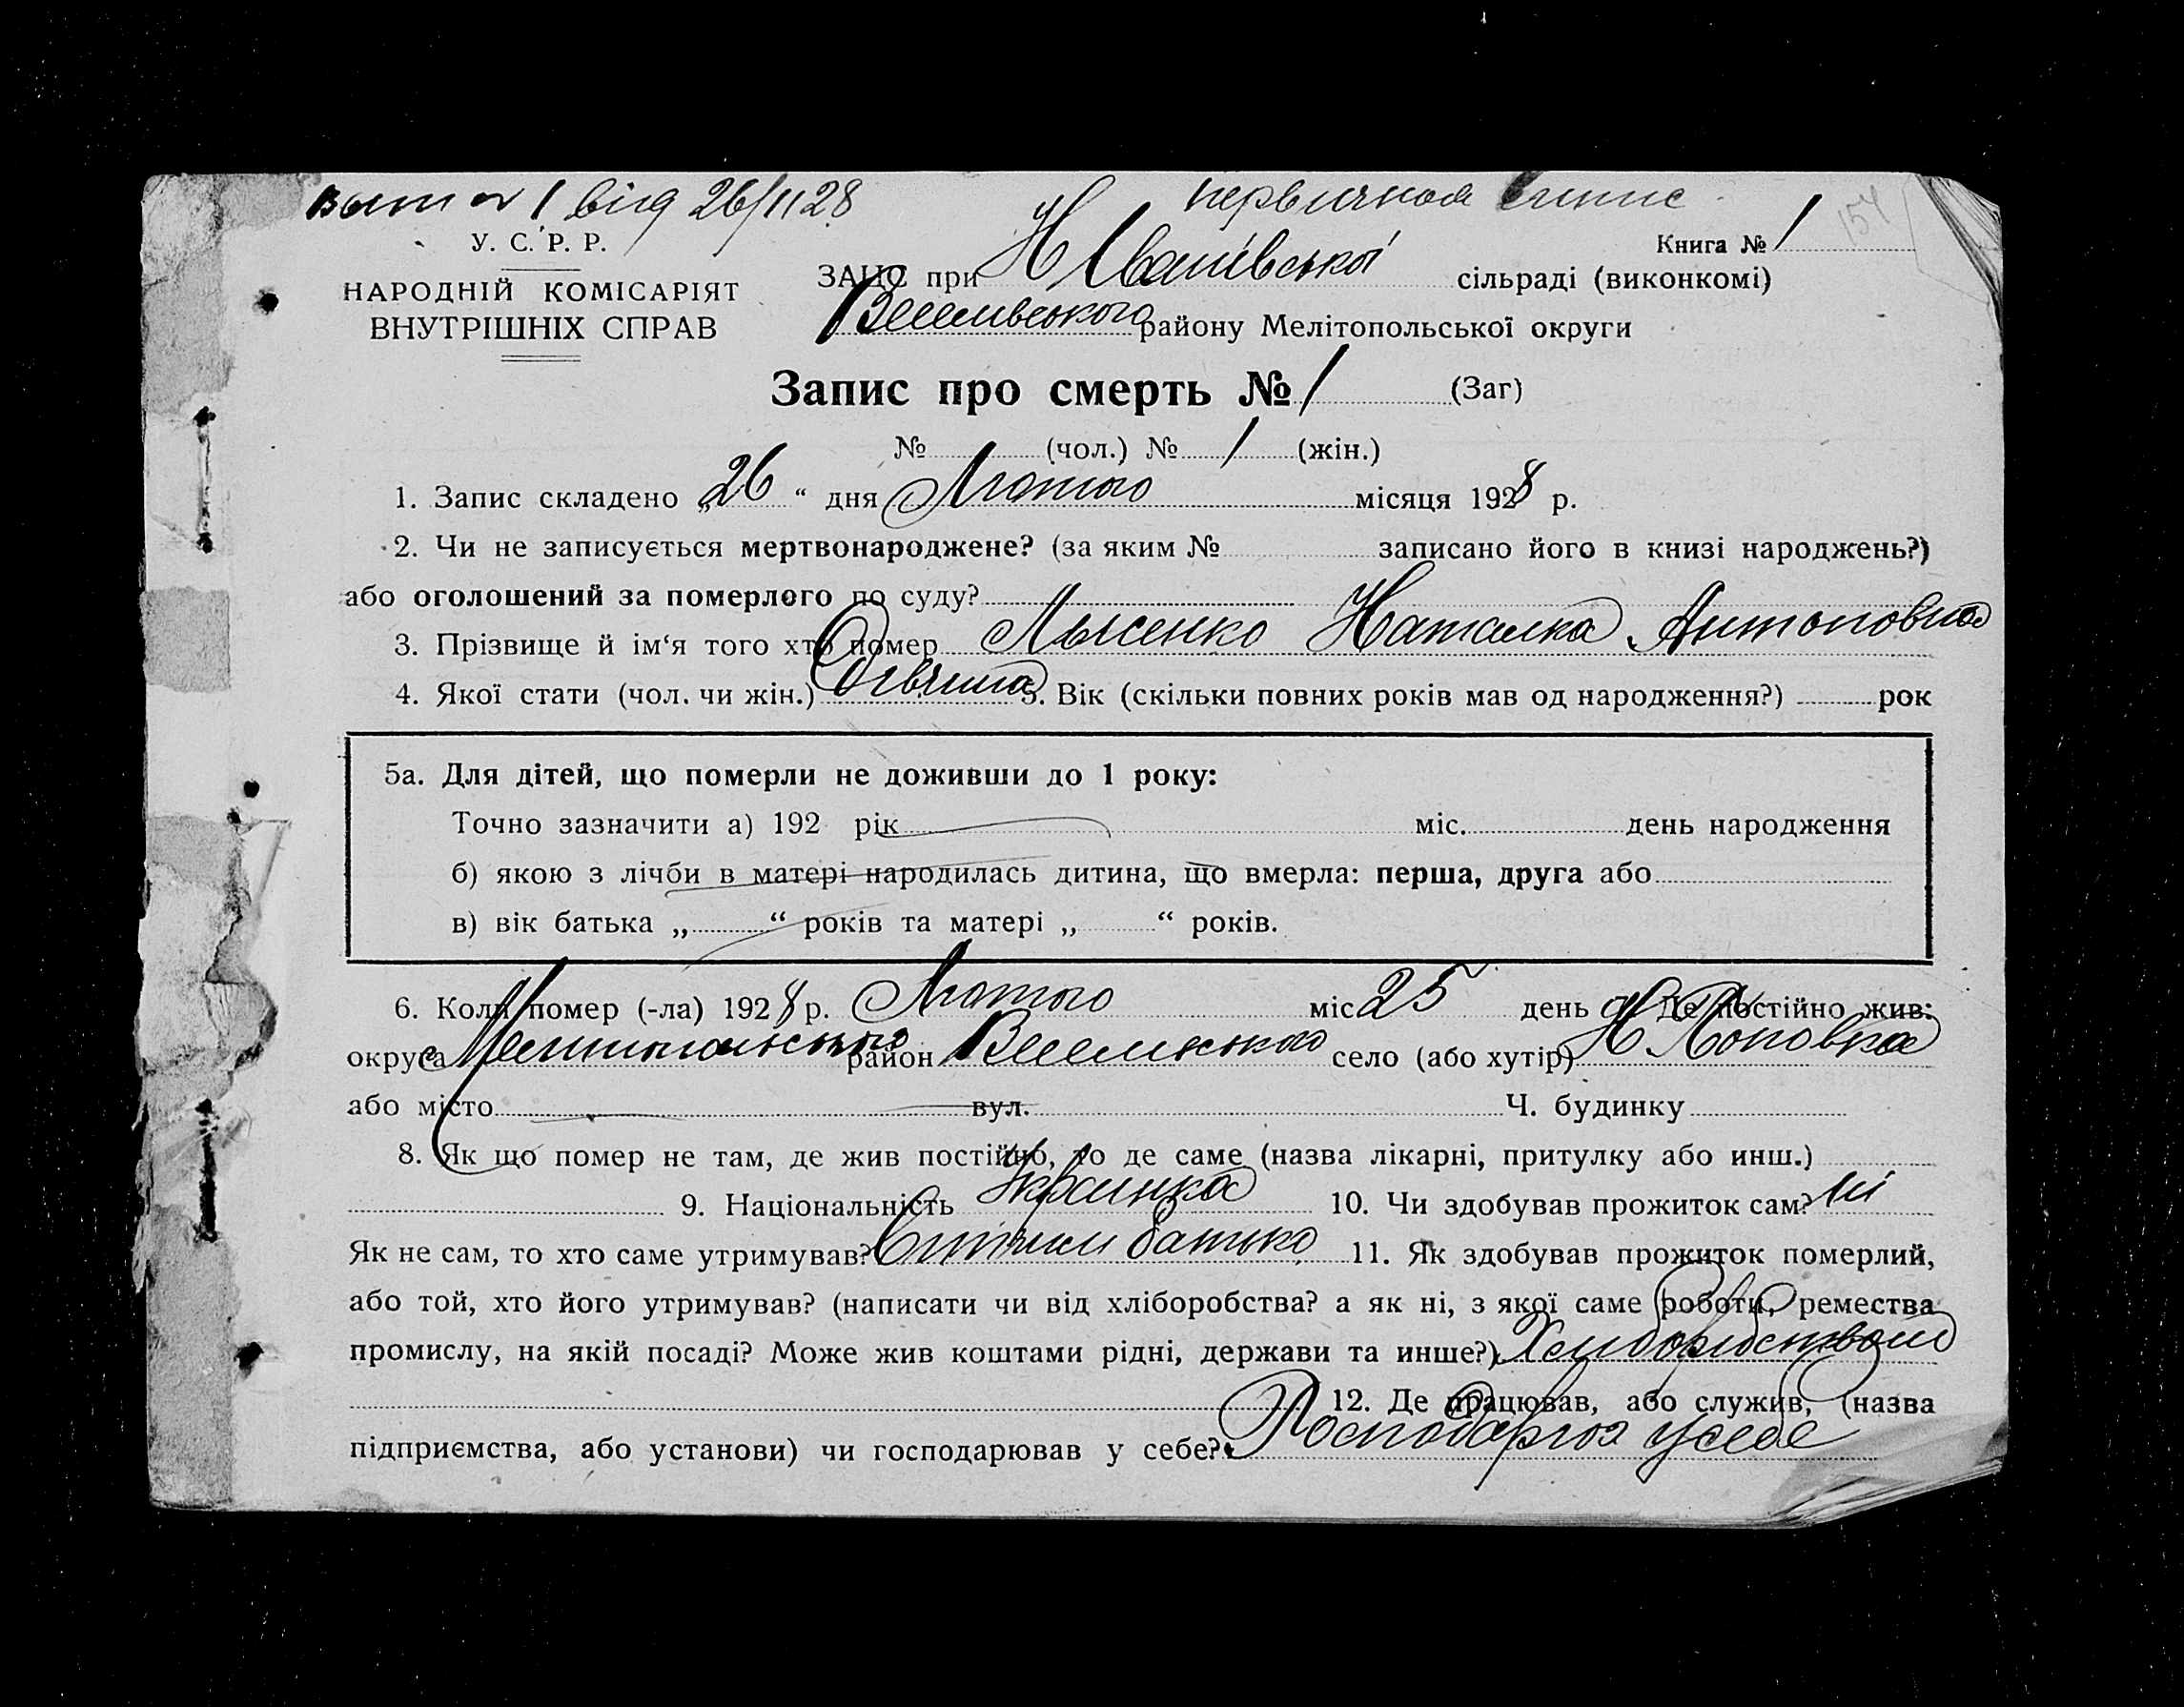 1 від 26/II 28
У. С. Р. Р.
НАРОДНІЙ КОМІСАРІЯТ
ВНУТРІШНІХ СПРАВ
Книга № 1
154
ЗАЦС при Н Іванівської сільраді (виконкомі)
Веселивського району Мелітопольської округи
Запис про смерть № 1 (Заг)
№ (чол.) № 1 (жін.)
1. Запис складено „26“ дня Лютого місяця 1928 р.
2. Чи не записується мертвонароджене? (за яким № записано його в книзі народжень?)
або оголошений за померлого по суду?
3. Прізвище й ім‘я того хто помер Лысенко Наталка Антоновна
4. Якої стати (чол. чи жін.) 5. Вік (скільки повних років мав од народження?) рок
5а. Для дітей, що померли не доживши до 1 року:
Точно зазначити а) 192 рік міс. день народження
б) якою з лічби в матері народилась дитина, що вмерла: перша, друга або
в) вік батька „ “ років та матері „ “ років.
6. Коли помер (-ла) 1928 р. Лютого міс 25 день Де постійно жив:
округа район село (або хутір) Н
або місто вул. Ч. будинку
8. Як що помер не там, де жив постійно, то де саме (назва лікарні, притулку або инш.)
9. Національність Украинка 10. Чи здобував прожиток сам? ні
Як не сам, то хто саме утримував? батько 11. Як здобував прожиток померлий,
або той, хто його утримував? (написати чи від хліборобства? а як ні, з якої саме роботи, ремества
промислу, на якій посаді? Може жив коштами рідні, держави та инше?)
12. Де працював, або служив, (назва
підприємства, або установи) чи господарював у себе? у себе